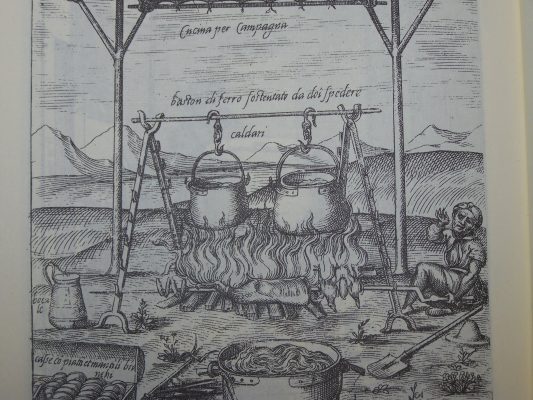 Cucina per Campagna
baston di ferro sostentato da doi spedere
caldari
boca
lo
casse co piati et manoli di bia
nchi